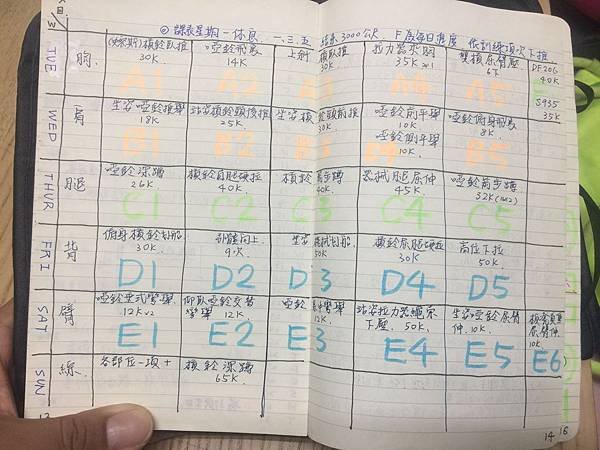 課表星期一休息 一、三、五 結束3000公尺 F 度每日進度
TUE 胸 (史密斯)槓鈴臥推 30K 啞鈴飛鳥 14K 上斜槓臥推 30K 拉力器夾胸 35K×1 雙槓屈臂撐 6下 DF20G 40K
A1 A2 A4 A5 S935 35K
WED 肩 坐姿啞鈴推舉 18K 站姿槓鈴頸後推 25K 坐姿槓鈴頸前推 30K 啞鈴前平舉 10K 啞鈴側平舉 10K 啞鈴俯身飛鳥 8K
B1 B2 B3 B4 B5
THUR 腿 啞鈴深蹲 26K 槓鈴直腿硬拉 40K 槓鈴 蹲 40K 器械腿屈伸 45K 啞鈴前步蹲 32K(16×2)
C1 C2 C3 C4 C5
FRI 背 俯身槓鈴划船 30K 引體向上 9次 坐姿器械划船 50K 槓鈴屈腿硬拉 30K 高位下拉 50K
D1 D2 D3 D4 D5
SAT 臂 啞鈴 式彎舉 12K×2 仰臥啞鈴交替彎舉 12K 啞鈴 彎舉 12K 站姿拉力器繩索下壓 50K 坐姿啞鈴屈臂伸 10K 屈臂伸 10K
E1 E2 E3 E4 E5 E6
SUN 綜 各部位一項+ 槓鈴深蹲 65K
14 15